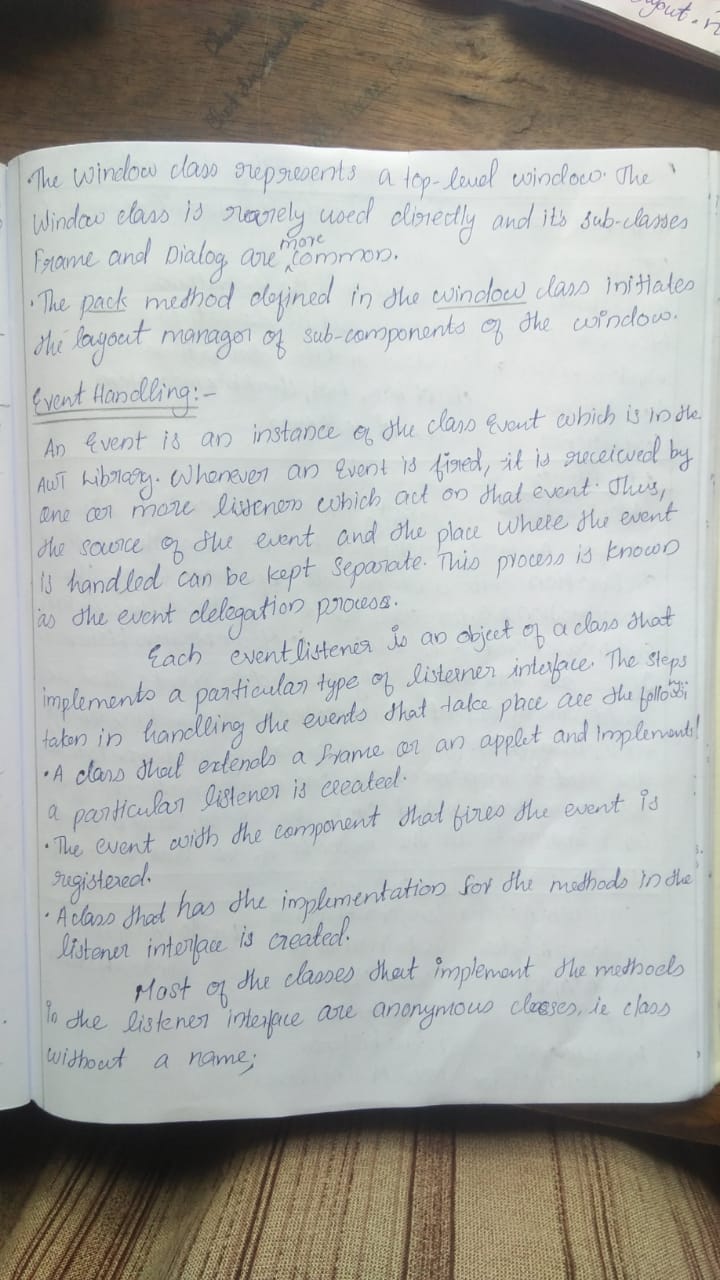 yout.
• The window class represents a top-level window. The
Window class is rarely used directly and its sub-classes
Frame and Dialog are more common.
• The pack method defined in the window class initiates
the layout manager of sub-components of the window.
Event Handling:-
An Event is an instance of the class Event which is in the
AWT Library. Whenever an Event is fired, it is received by
one or more listeners which act on that event. Thus,
the source of the event and the place where the event
is handled can be kept separate. This process is known
as the event delegation process.
Each event listener is an object of a class that
implements a particular type of listerner interface. The steps
taken in handling the events that take place are the following:
• A class that extends a Frame or an applet and implements
a particular listener is created.
• The event with the component that fires the event is
registered.
• A class that has the implementation for the methods in the
listener interface is created.
Most of the classes that implement the methods
in the listener interface are anonymous classes, ie class
without a name;